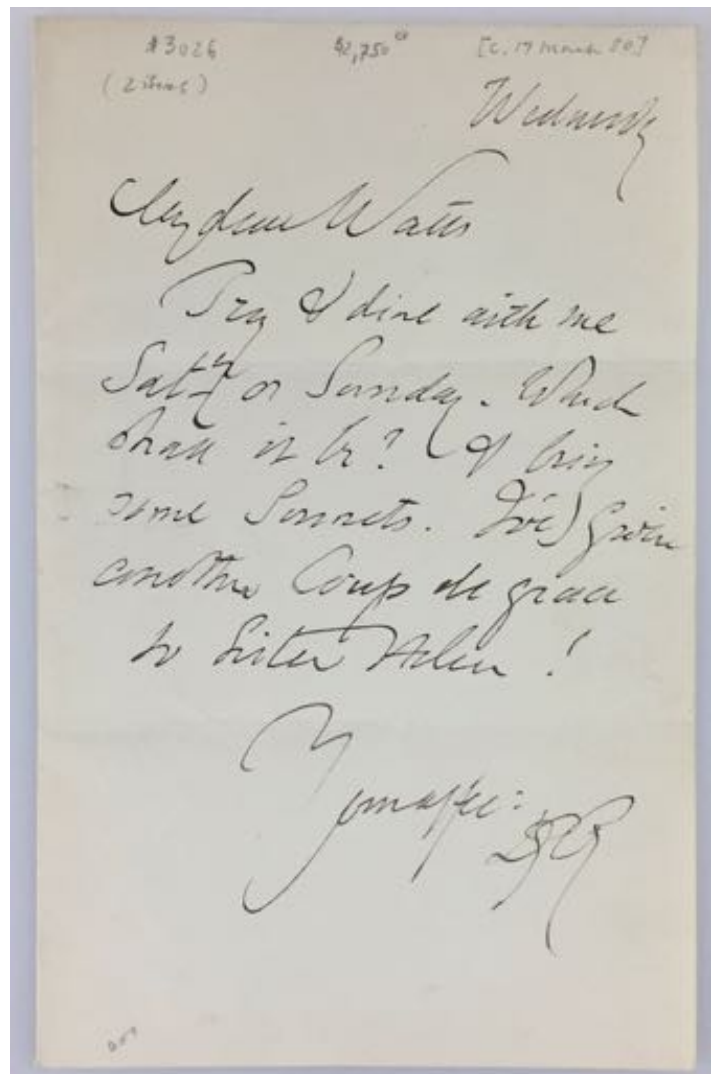 #3026 $2,750 [c. 17 March 80]
(2 items)
Wednesdy
My dear Watts
Try & dine with me
Saty or Sunday. Which
shall it be? & bring
some Sonnets. I've given
another Coup de grace
to Sister Helen!
Your affec:
DGR